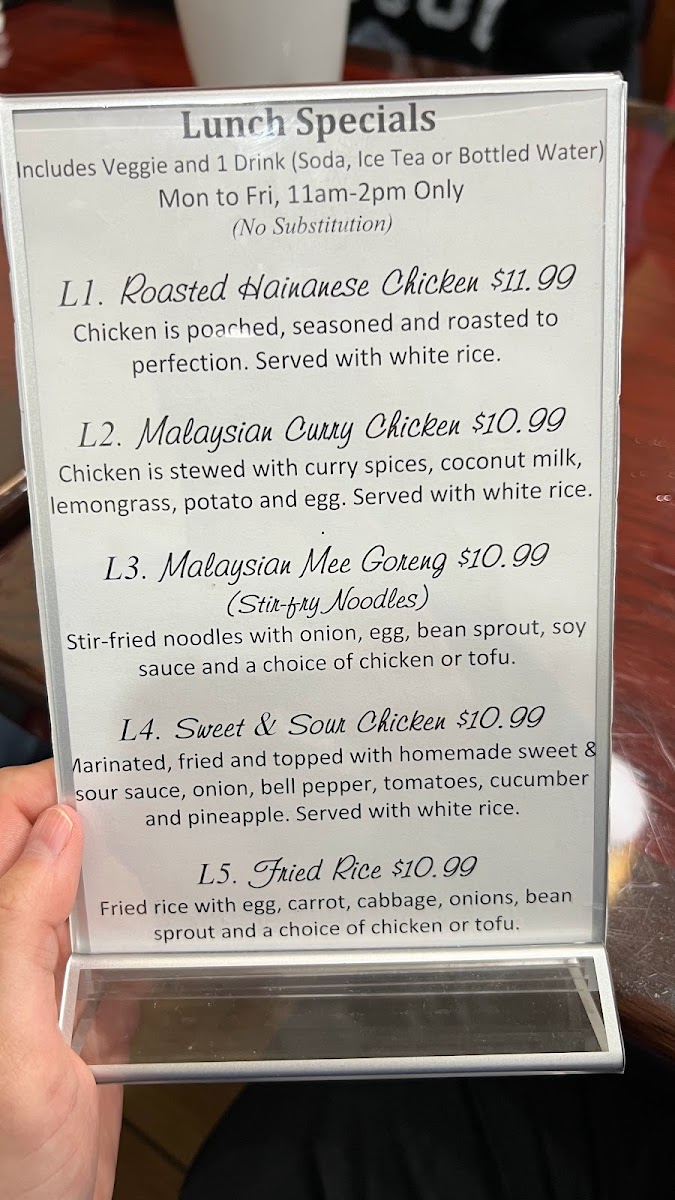 Lunch Specials
Includes Veggie and 1 Drink (Soda, Ice Tea or Bottled Water)
Mon to Fri, 11am-2pm Only
(No Substitution)
L1. Roasted Hainanese Chicken $11.99
Chicken is poached, seasoned and roasted to
perfection. Served with white rice.
L2. Malaysian Curry Chicken $10.99
Chicken is stewed with curry spices, coconut milk,
lemongrass, potato and egg. Served with white rice.
L3. Malaysian Mee Goreng $10.99
(Stir-fry Noodles)
Stir-fried noodles with onion, egg, bean sprout, soy
sauce and a choice of chicken or tofu.
L4. Sweet & Sour Chicken $10.99
Marinated, fried and topped with homemade sweet &
sour sauce, onion, bell pepper, tomatoes, cucumber
and pineapple. Served with white rice.
L5. Fried Rice $10.99
Fried rice with egg, carrot, cabbage, onions, bean
sprout and a choice of chicken or tofu.